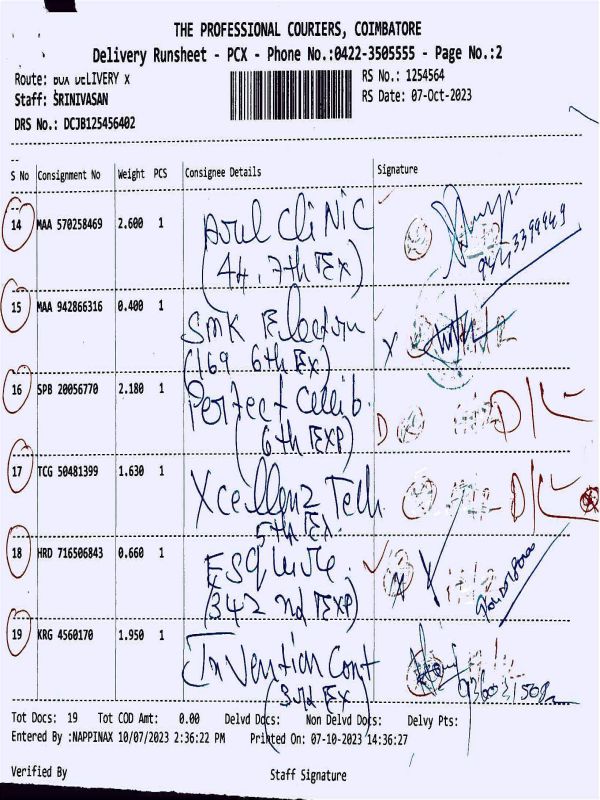 THE PROFESSIONAL COURIERS, COIMBATORE
Delivery Runsheet - PCX - Phone No.:0422-3505555 - Page No.:2
Route: DELIVERY X
RS No.: 1254564
Staff: SRINIVASAN
RS Date: 07-Oct-2023
DRS No.: DCJB125456402
S No Consignment No Weight PCS Consignee Details Signature
14 MAA 570258469 2.600 1 Arul CliNiC
(44, 7th Ex)
15 MAA 942866316 0.400 1 SMK
(169 6th Ex) X
16 SPB 20056770 2.180 1 Perfect Callib. D D/L
(6th EXP)
17 TCG 50481399 1.630 1 Xcellenz Tech D/L
5th Ex.
18 HRD 716506843 0.660 1 Esquire
(342 2nd EXP)
19 KRG 4560170 1.950 1 Invention Cont
(3rd Ex)
Tot Docs: 19 Tot COD Amt: 0.00 Delvd Docs: Non Delvd Docs: Delvy Pts:
Entered By :NAPPINAX 10/07/2023 2:36:22 PM Printed On: 07-10-2023 14:36:27
Verified By Staff Signature